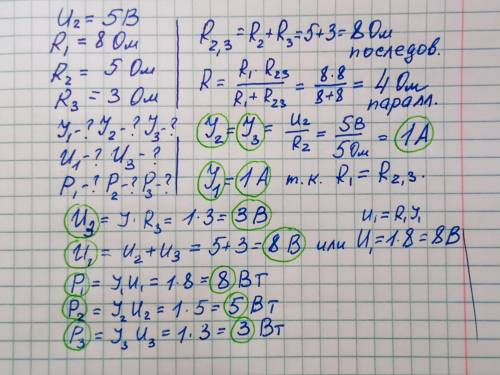 U₂ = 5 В
R₁ = 8 Ом
R₂ = 5 Ом
R₃ = 3 Ом
Y₁-? Y₂-? Y₃-?
U₁-? U₃-?
P₁-? P₂-? P₃-?
R₂,₃ = R₂ + R₃ = 5+3 = 8 Ом
последов.
R = R₁·R₂₃ / R₁+R₂₃ = 8·8 / 8+8 = 4 Ом
паралл.
Y₂ = Y₃ = U₂ / R₂ = 5В / 5 Ом = 1А
Y₁ = 1А т.к. R₁ = R₂,₃.
U₃ = Y·R₃ = 1·3 = 3 В
U₁ = R₁Y₁
U₁ = U₂ + U₃ = 5+3 = 8 В или U₁ = 1·8 = 8В
P₁ = Y₁U₁ = 1·8 = 8 Вт
P₂ = Y₂U₂ = 1·5 = 5 Вт
P₃ = Y₃U₃ = 1·3 = 3 Вт